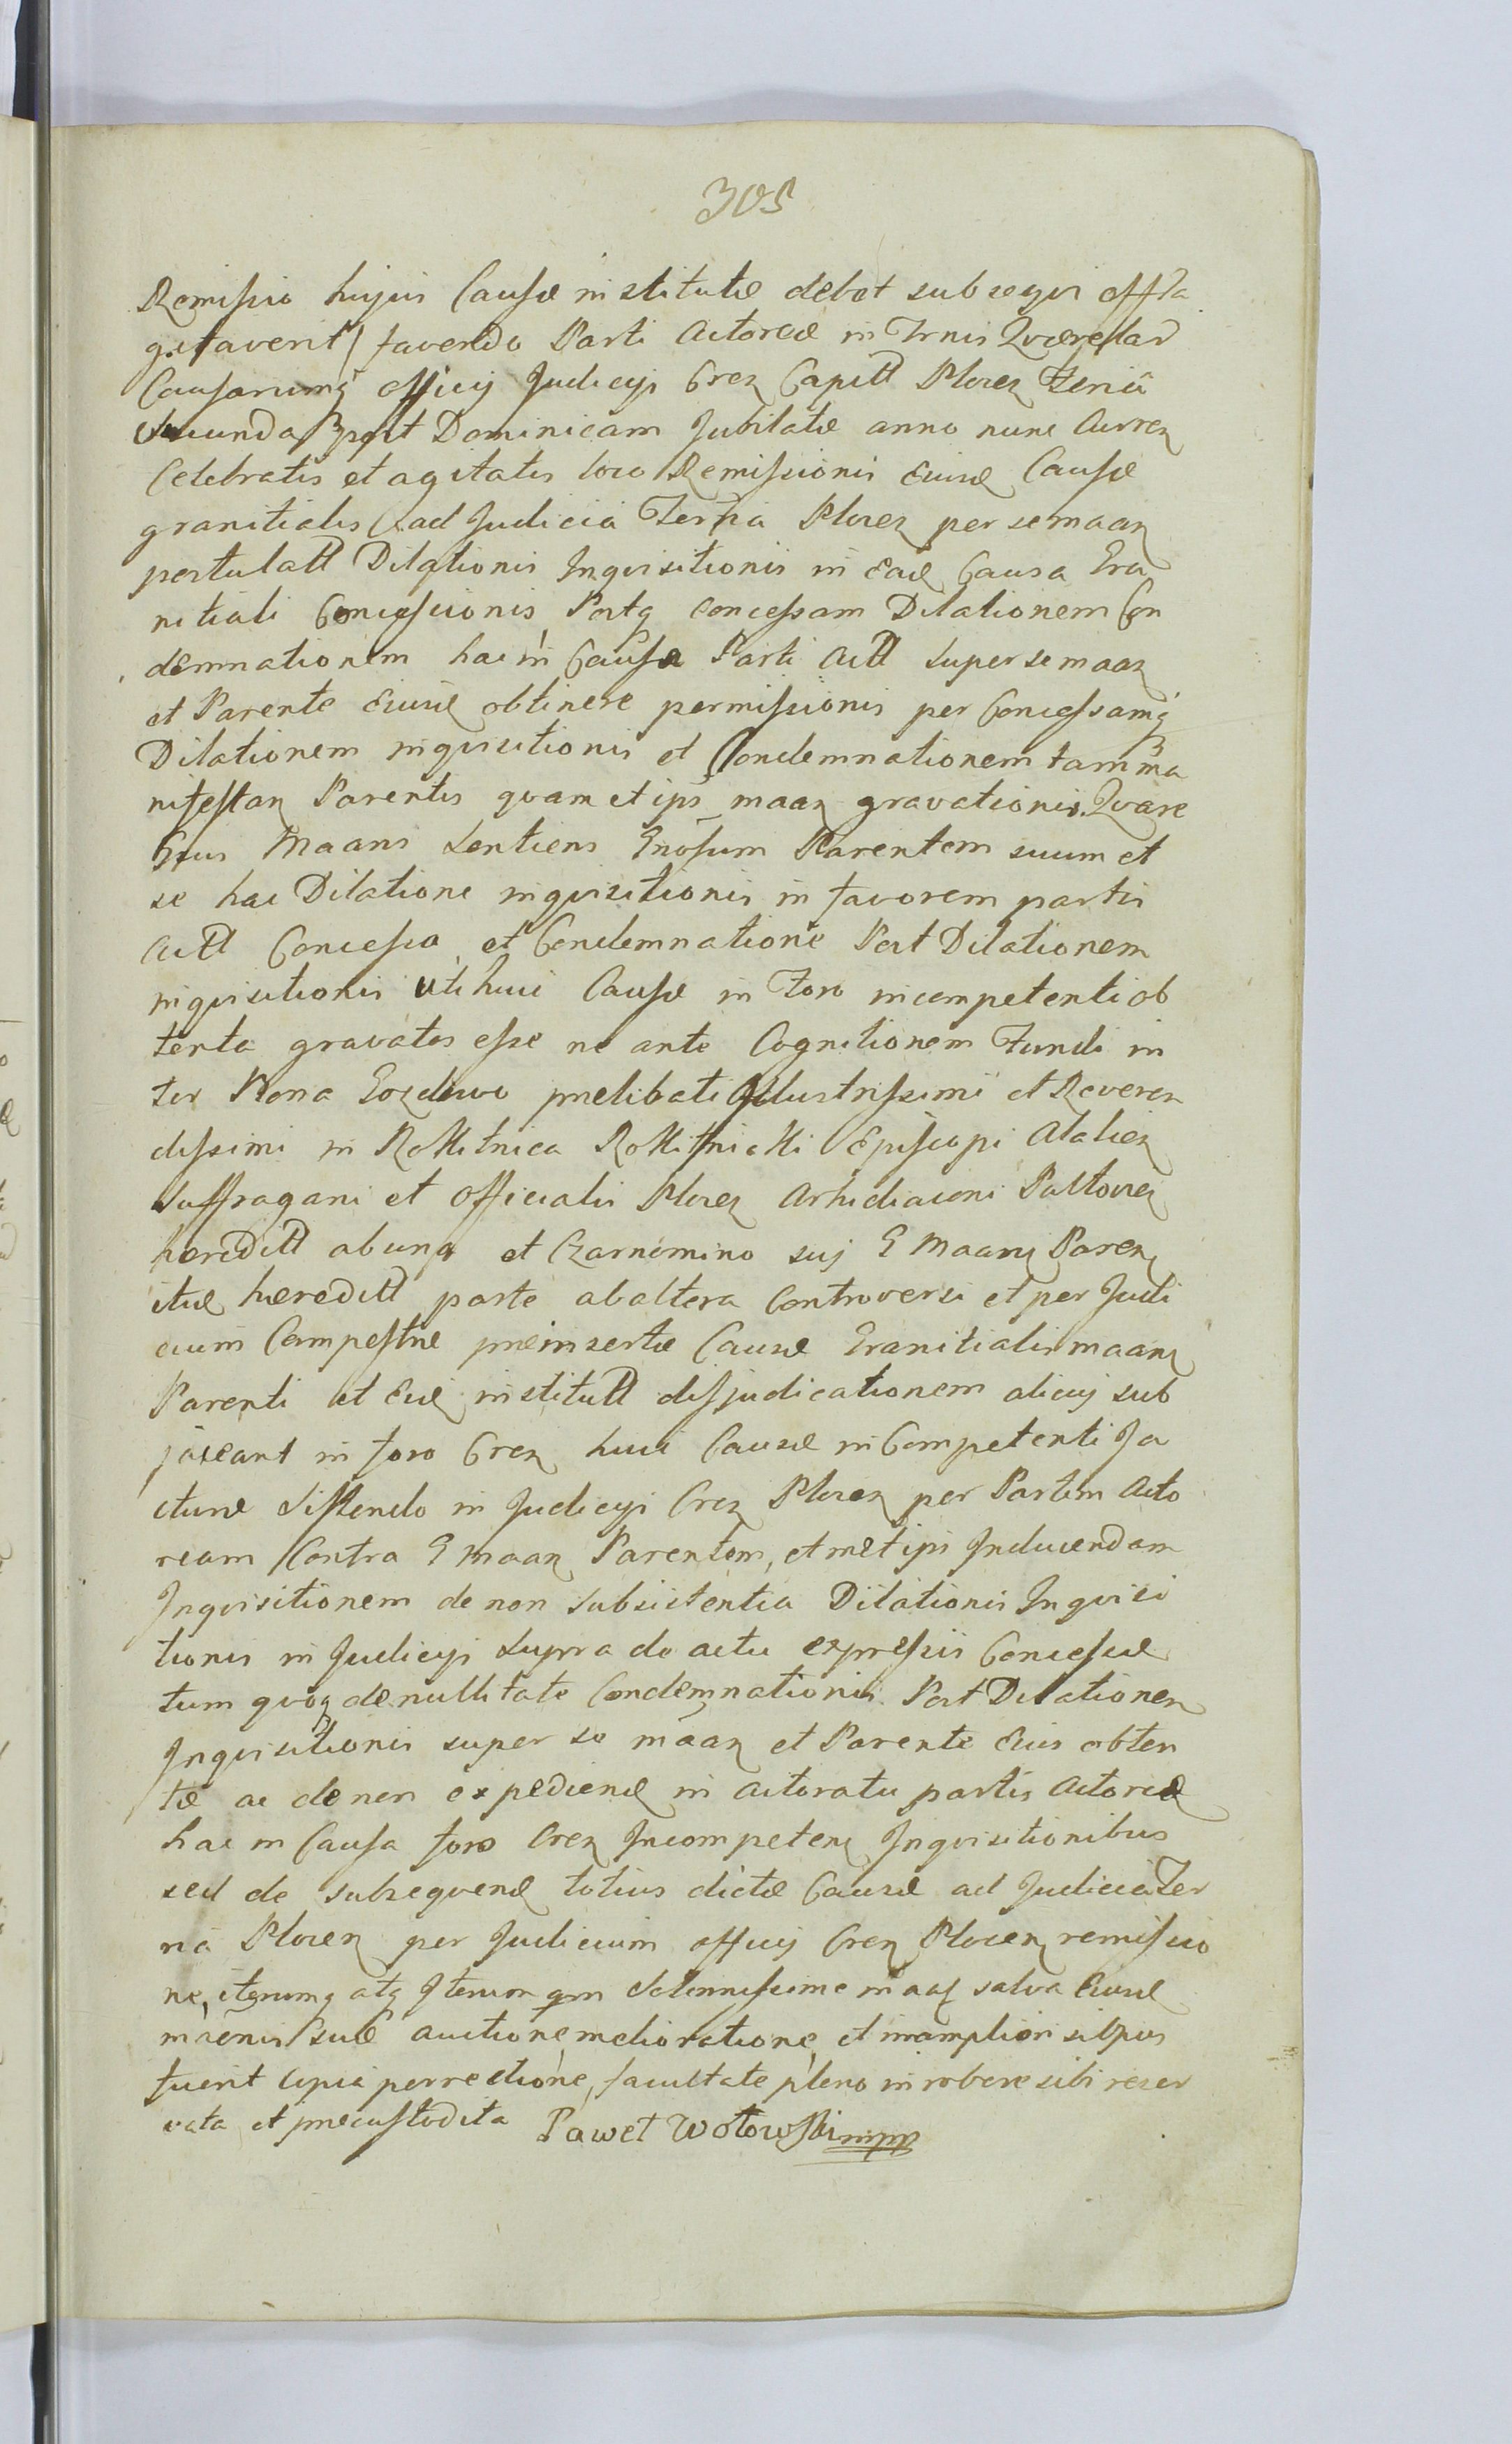 305
Remissio hujus Causæ institutæ debet subsequi effla
gitaverit favendo Parti Actoreæ in Trnis Quærelar
Causarumq officij Judicyi Cren Capitt Plocen Feria
secunda post Dominicam Jubilatæ anno nunc Curren
Celebratis et agitatis loco Remissionis Eiusd Causæ
granitialis ad Judicia Terña Plocen per se maan
postulatt Dilationis Inquisitionis in Ead Causa Gra
nitiali Concessionis Postq concessam Dilationem Con
demnationem hac in Causa Parti Actt super se maan
et Parente Eiusd obtinere permissionis per Concessamq
Dilationem inquisitionis et Condemnationem tam ma
nifestan Parentis quam et ips maan gravationis. Quare
Maans sentiens Gnosum Parentem suum et
se hac Dilatione inquisitionis in favorem partis
Actt Concessa et Condemnatione Post Dilationem
inquisitionis uti huic Causæ in Foro incompetenti ob
tenta gravatos esse ne ante Cognitionem Fundi in
ter Bona Gozdowo prælibati Illustrissimi et Reveren
dissimi in Rokitnica Rokitnicki Episcopi Atalien
Suffragani et Officialis Plocen Archidiaconi Pultovien
hæreditt ab una et Czarnomino suj G Maans Paren
itid hæreditt parte ab altera Controversi et per Judi
cium Campestre præinsertæ Causæ Granitialis maans
Parenti et Eid institutt disjudicationem alicuj sub
jaceant in foro Cren huic Causæ in Competenti Ja
cturæ Sistendo in Judicyi Cren Plocen per Partem Acto
ream Contra G maan Parentem, et met ips Inducendam
Inquisitionem de non subsistentia Dilationis Inquisi
tionis in Judicyi supra de actu expressis Concessæ
tum quoq de nullitate Condemnationis Post Dilationen
Inquisitionis super se maan et Parente Eius obten
tæ ac de non expediend in actoratu partis Actoreæ
hac in Causa foro Cren Incompeten Inquisitionibus
sed de subsequend totius dictæ Causæ ad Judicia Ter
na Plocen per Judicium officij Cren Plocen remissio
ne, iterumq atq Iterum qm Solennissime maas salva Eiusd
maenis suæ auctione, melioratione, et in ampliori si opus
fuerit copia porrectione, facultate pleno in robore sibi reser
vata et præcustodita Paweł Wołowski mpp